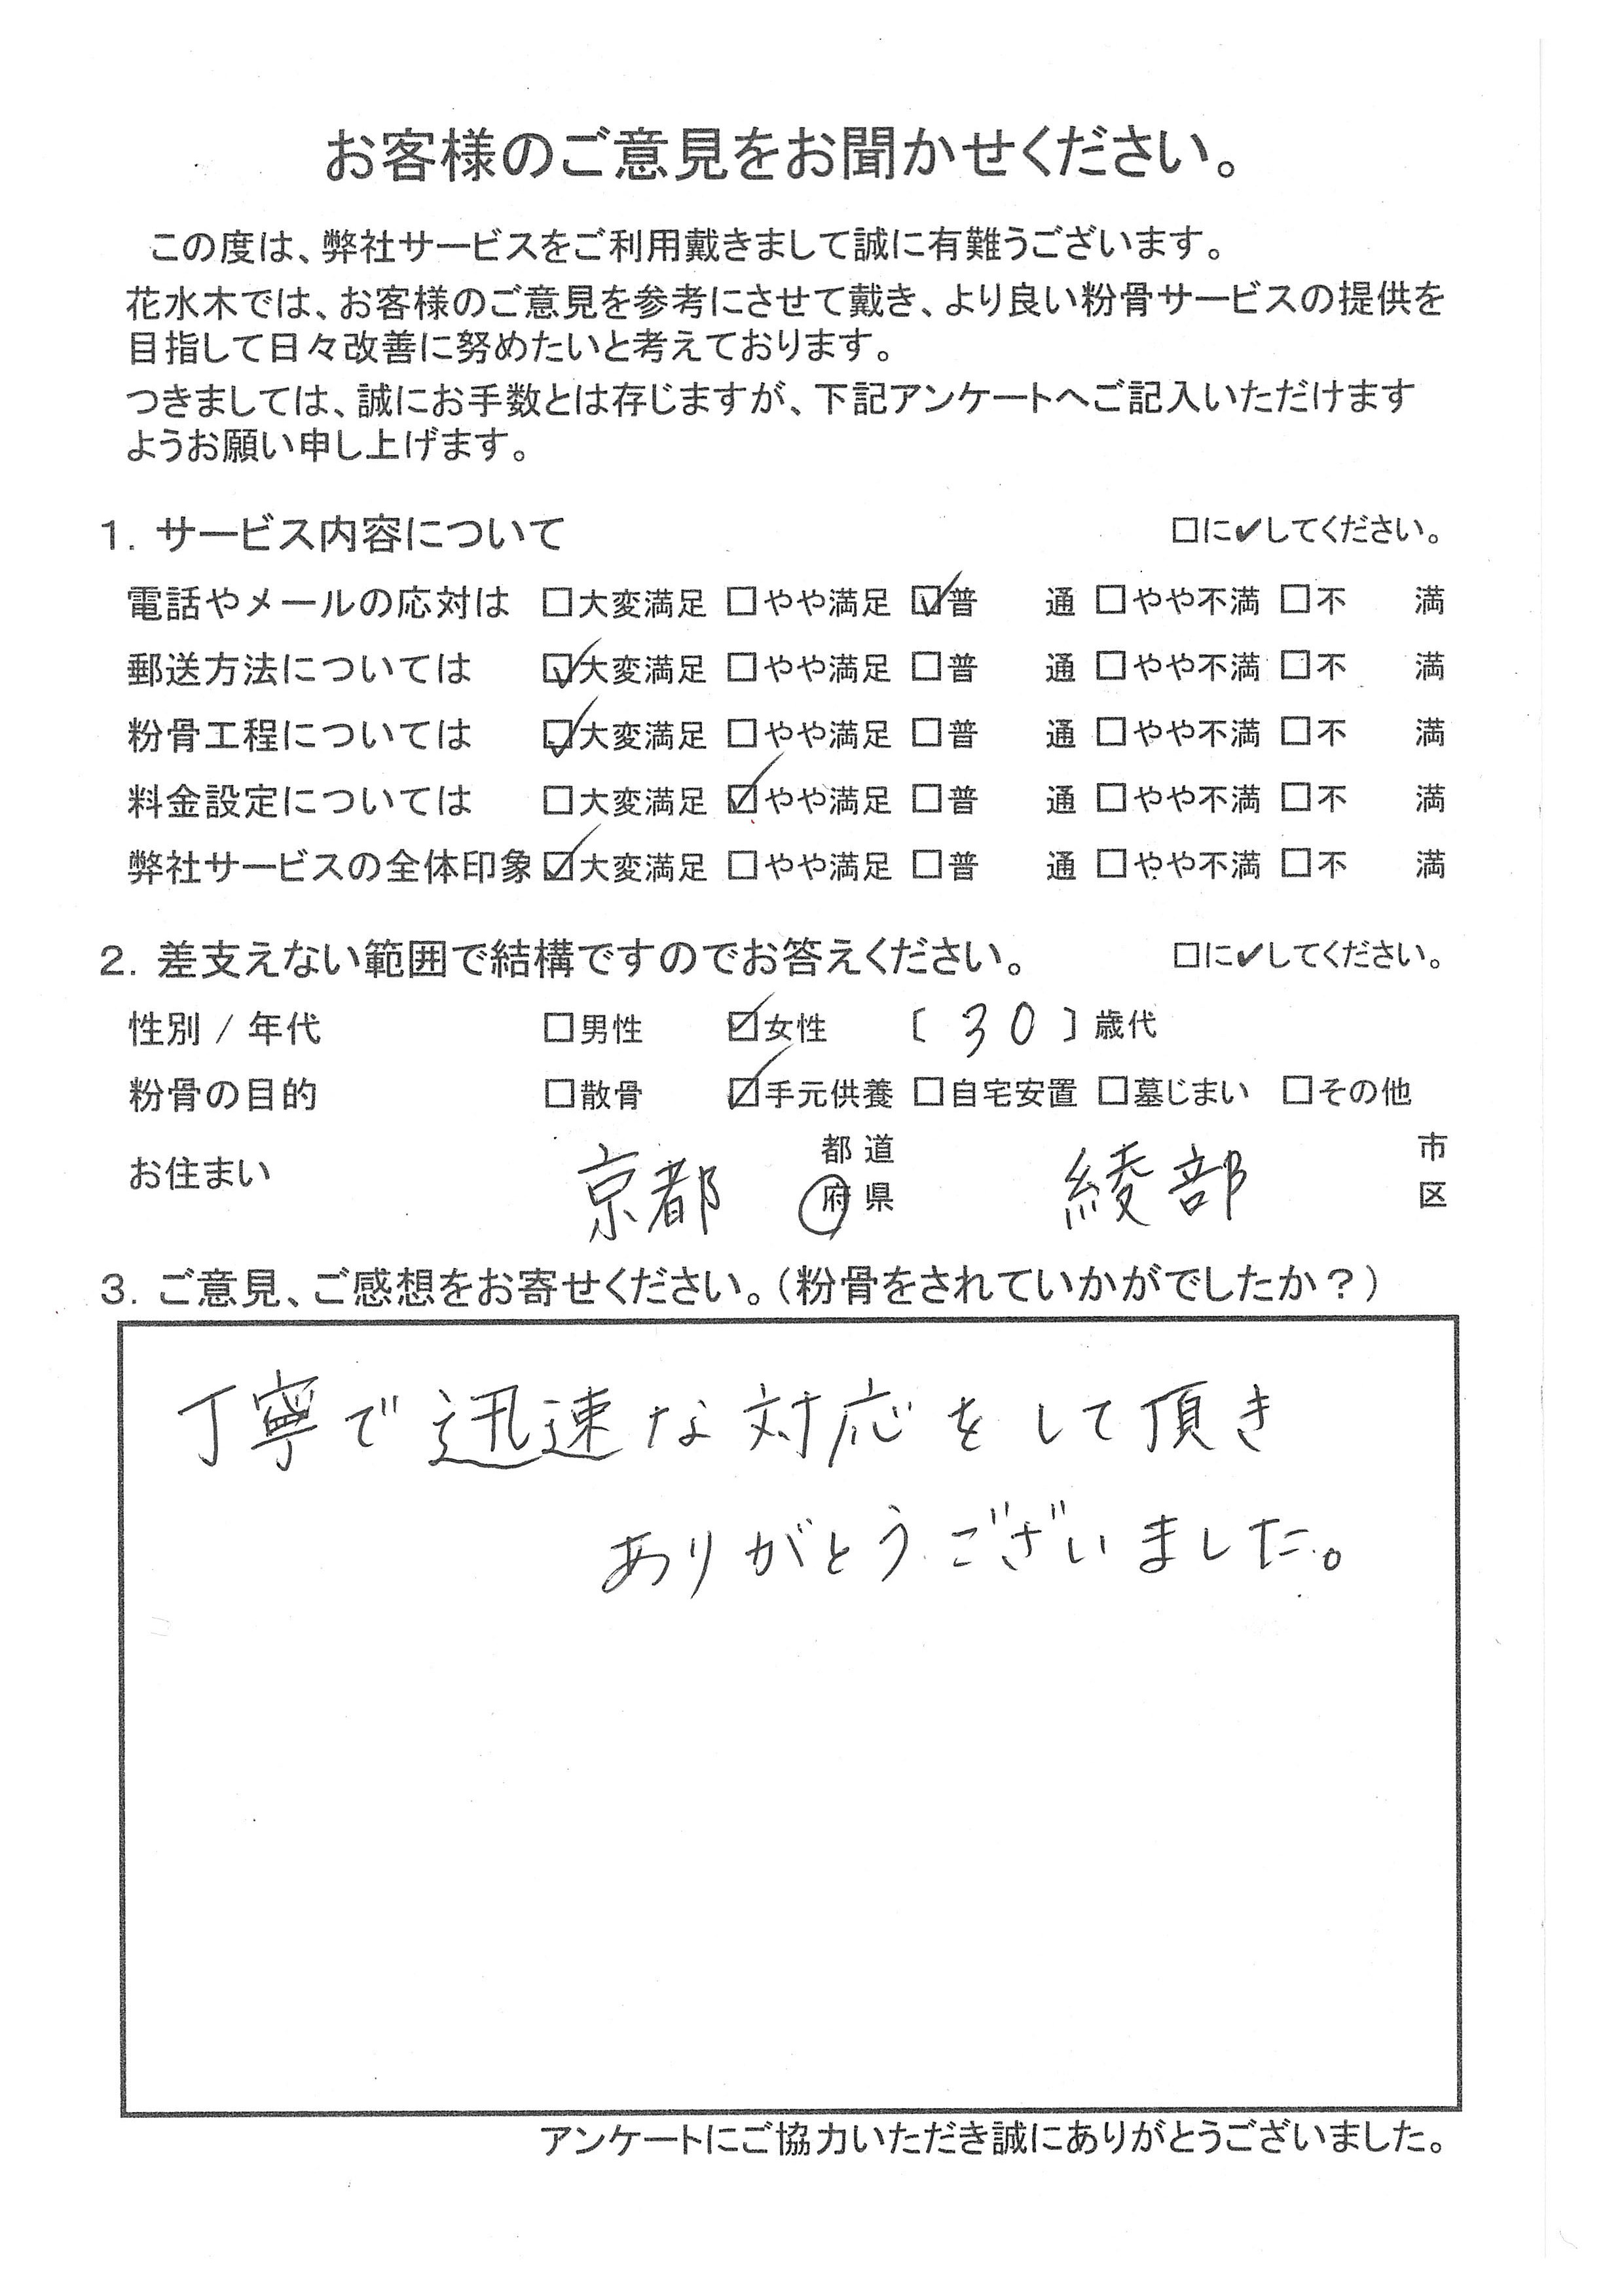 お客様のご意見をお聞かせください。
この度は、弊社サービスをご利用戴きまして誠に有難うございます。
花水木では、お客様のご意見を参考にさせて戴き、より良い粉骨サービスの提供を
目指して日々改善に努めたいと考えております。
つきましては、誠にお手数とは存じますが、下記アンケートへご記入いただけます
ようお願い申し上げます。
1. サービス内容について □に✔してください。
電話やメールの応対は □大変満足 □やや満足 ☑普 通 □やや不満 □不 満
郵送方法については ☑大変満足 □やや満足 □普 通 □やや不満 □不 満
粉骨工程については ☑大変満足 □やや満足 □普 通 □やや不満 □不 満
料金設定については □大変満足 ☑やや満足 □普 通 □やや不満 □不 満
弊社サービスの全体印象 ☑大変満足 □やや満足 □普 通 □やや不満 □不 満
2. 差支えない範囲で結構ですのでお答えください。 □に✔してください。
性別 / 年代 □男性 ☑女性 〔 30 〕歳代
粉骨の目的 □散骨 ☑手元供養 □自宅安置 □墓じまい □その他
お住まい 京都 都道府県 綾部 市区
3. ご意見、ご感想をお寄せください。（粉骨をされていかがでしたか？）
丁寧で迅速な対応をして頂き
ありがとうございました。
アンケートにご協力いただき誠にありがとうございました。